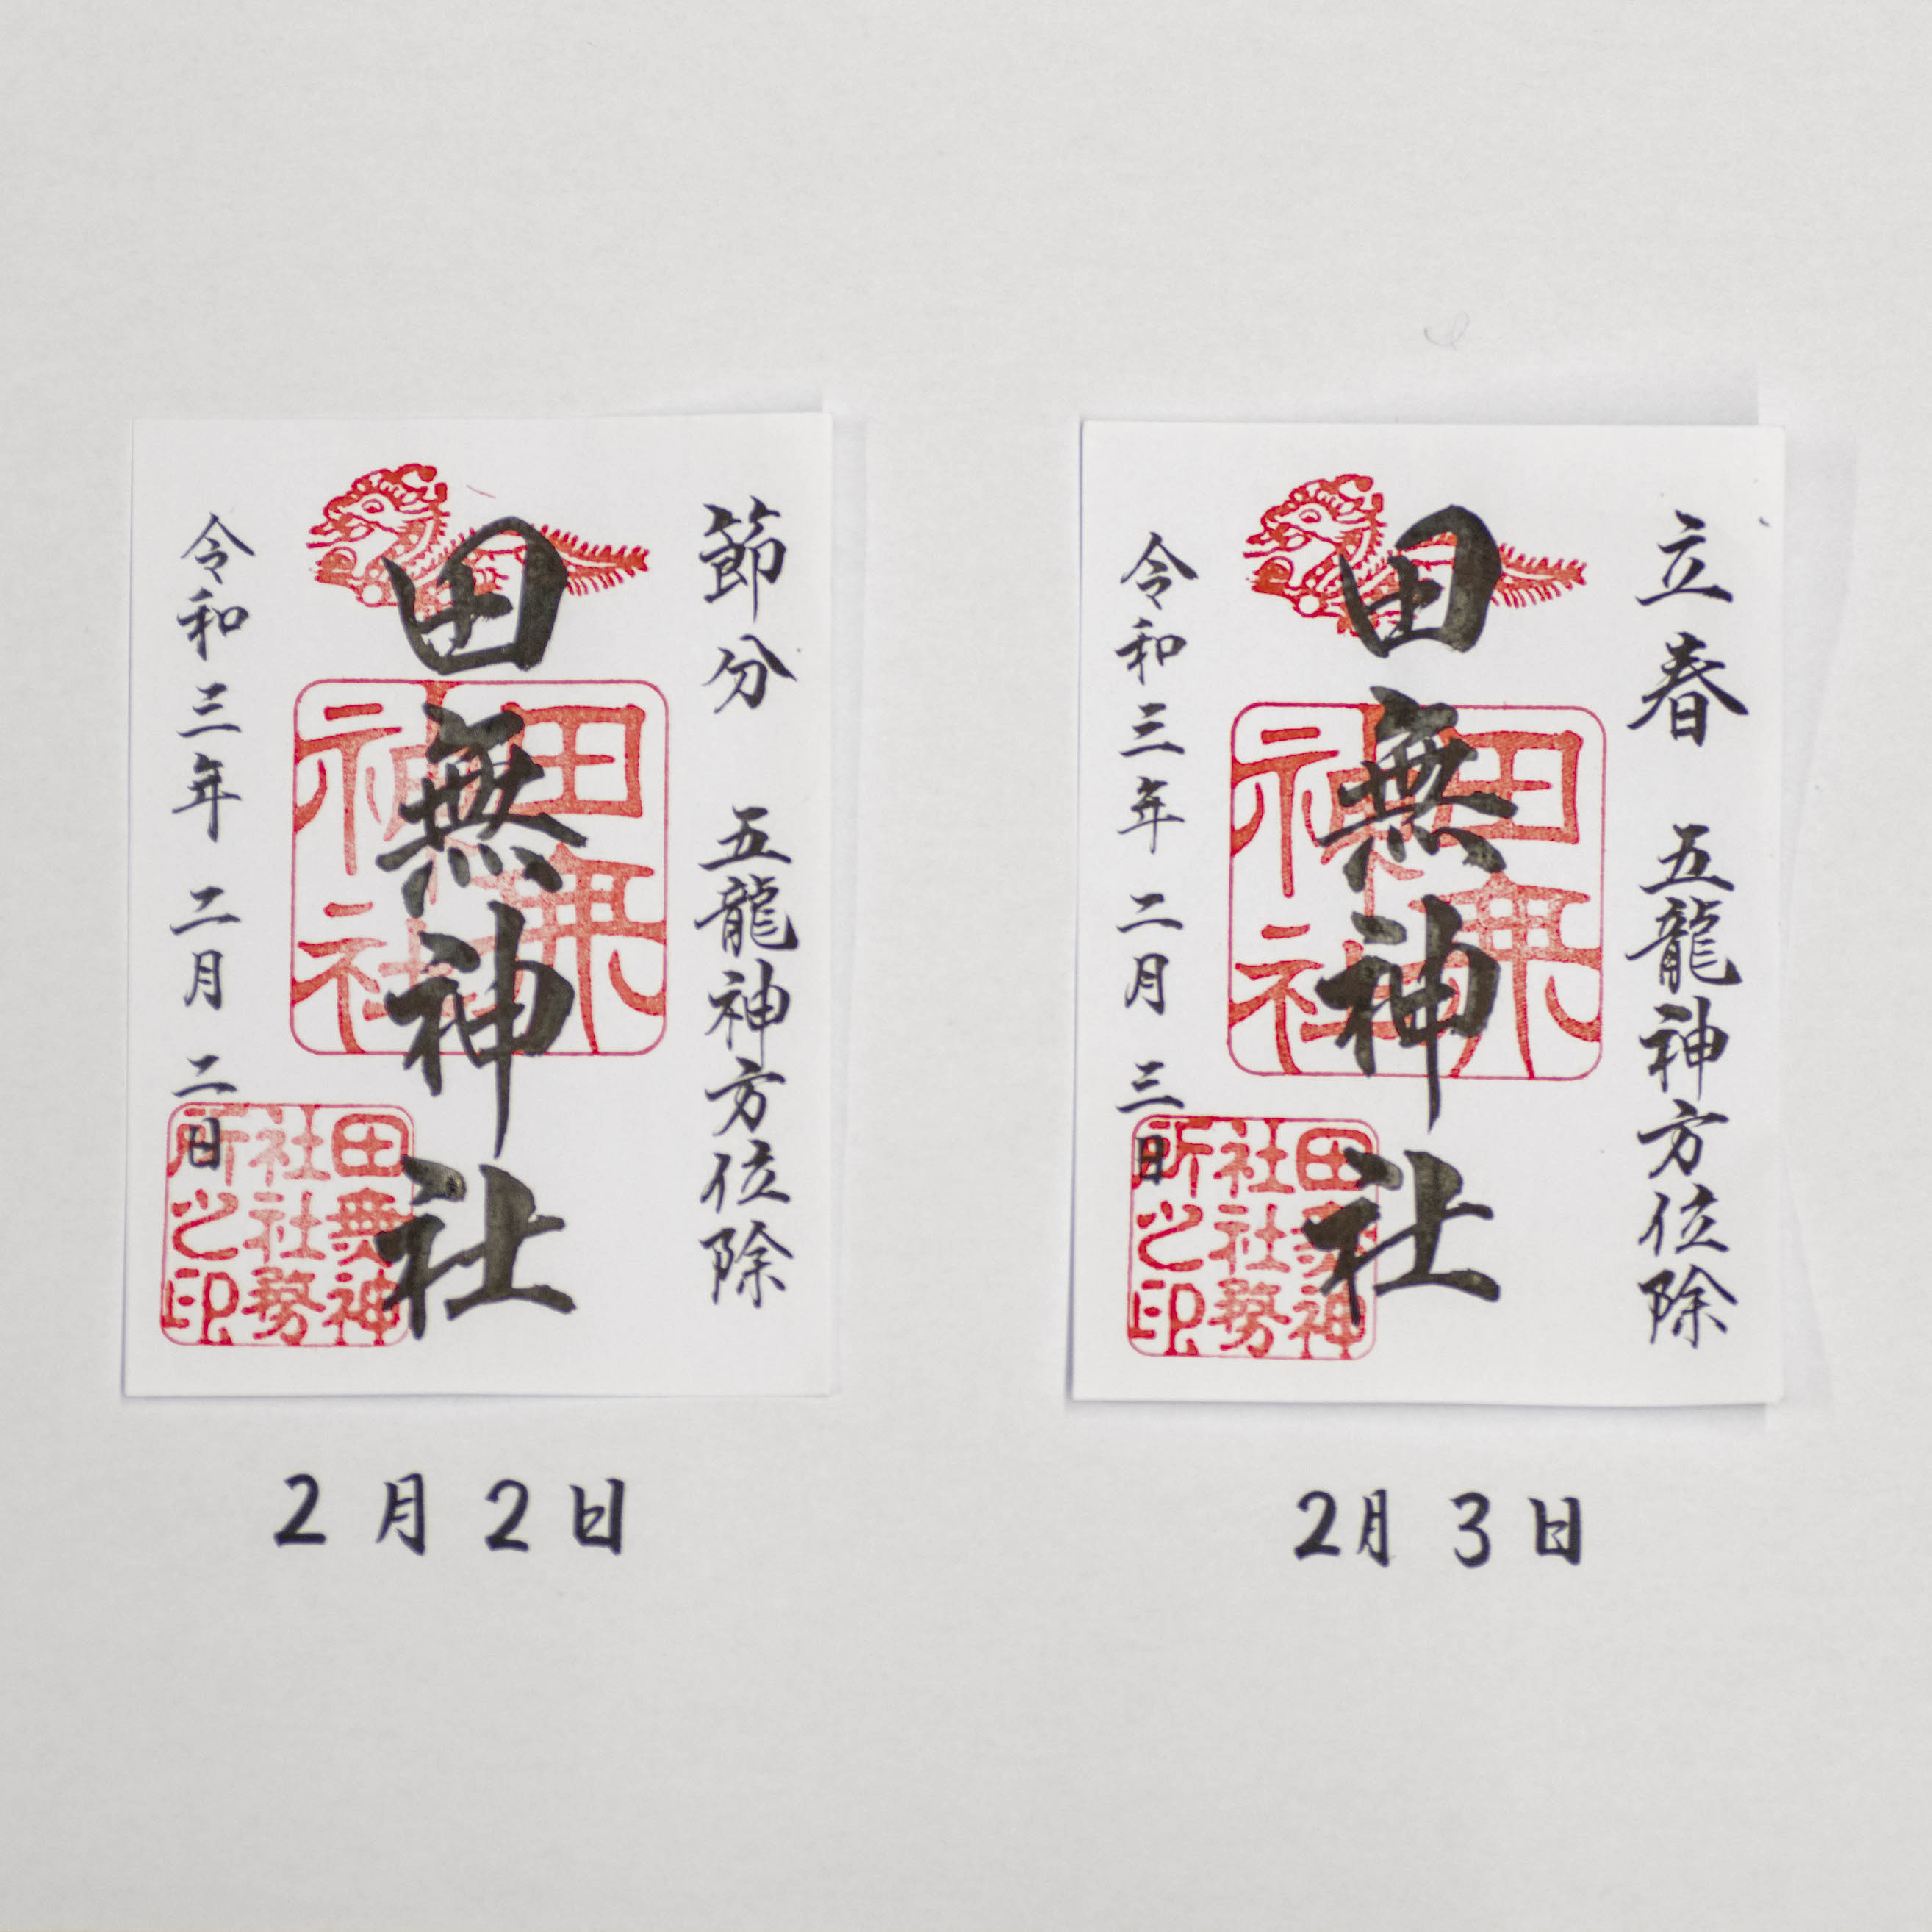 節分 五龍神方位除
田無神社
令和三年 二月 二日
田無
神社
田無神
社社務
所之印
2月2日
立春 五龍神方位除
田無神社
令和三年 二月 三日
田無
神社
田無神
社社務
所之印
2月3日